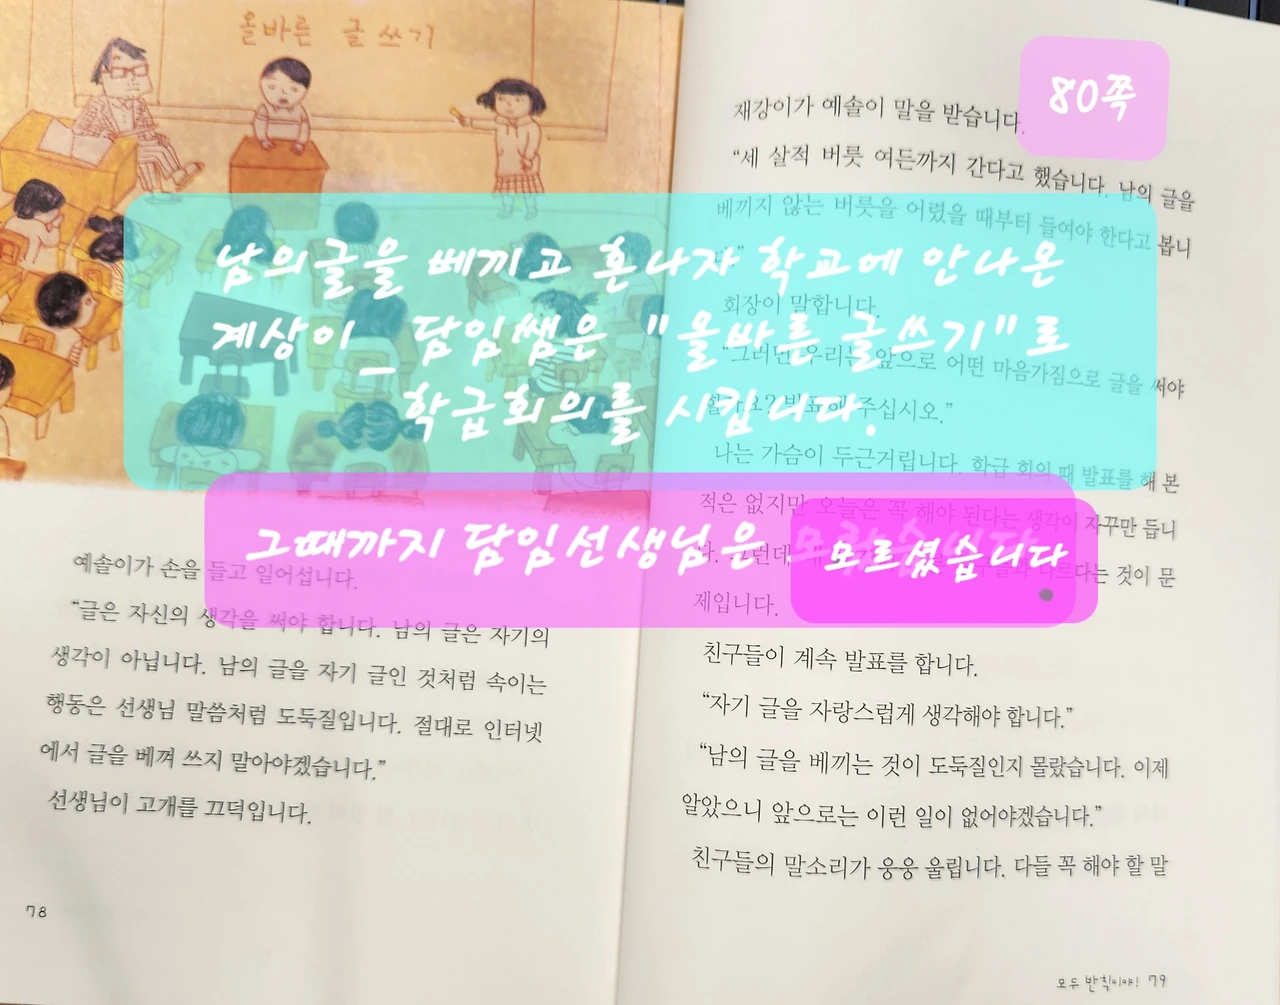 올바른 글쓰기
80쪽
남의글을 베끼고 혼나자 학교에 안나온
계상이 _ 담임쌤은 "올바른 글쓰기"로
학급회의를 시킵니다.
그때까지 담임선생님은 모르셨습니다
예솔이가 손을 들고 일어섭니다.
“글은 자신의 생각을 써야 합니다. 남의 글은 자기의
생각이 아닙니다. 남의 글을 자기 글인 것처럼 속이는
행동은 선생님 말씀처럼 도둑질입니다. 절대로 인터넷
에서 글을 베껴 쓰지 말아야겠습니다.”
선생님이 고개를 끄덕입니다.
78
재강이가 예솔이 말을 받습니다.
“세 살적 버릇 여든까지 간다고 했습니다. 남의 글을
베끼지 않는 버릇을 어렸을 때부터 들여야 한다고 봅니
다.”
회장이 말합니다.
“그러면 우리는 앞으로 어떤 마음가짐으로 글을 써야
할까요? 발표해 주십시오.”
나는 가슴이 두근거립니다. 학급 회의 때 발표를 해 본
적은 없지만 오늘은 꼭 해야 된다는 생각이 자꾸만 듭니
다. 그런데, 다르다는 것이 문
제입니다.
친구들이 계속 발표를 합니다.
“자기 글을 자랑스럽게 생각해야 합니다.”
“남의 글을 베끼는 것이 도둑질인지 몰랐습니다. 이제
알았으니 앞으로는 이런 일이 없어야겠습니다.”
친구들의 말소리가 웅웅 울립니다. 다들 꼭 해야 할 말
모두 반칙이야! 79